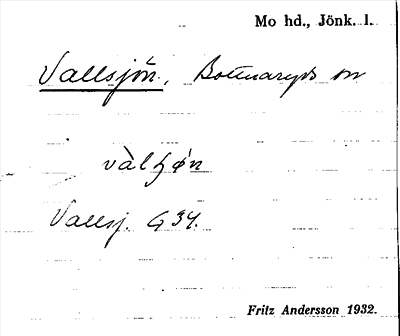 Mo hd., Jönk. l.
Vallsjön, Bottnaryds sn
Vallsj. G 34.
Fritz Andersson 1932.